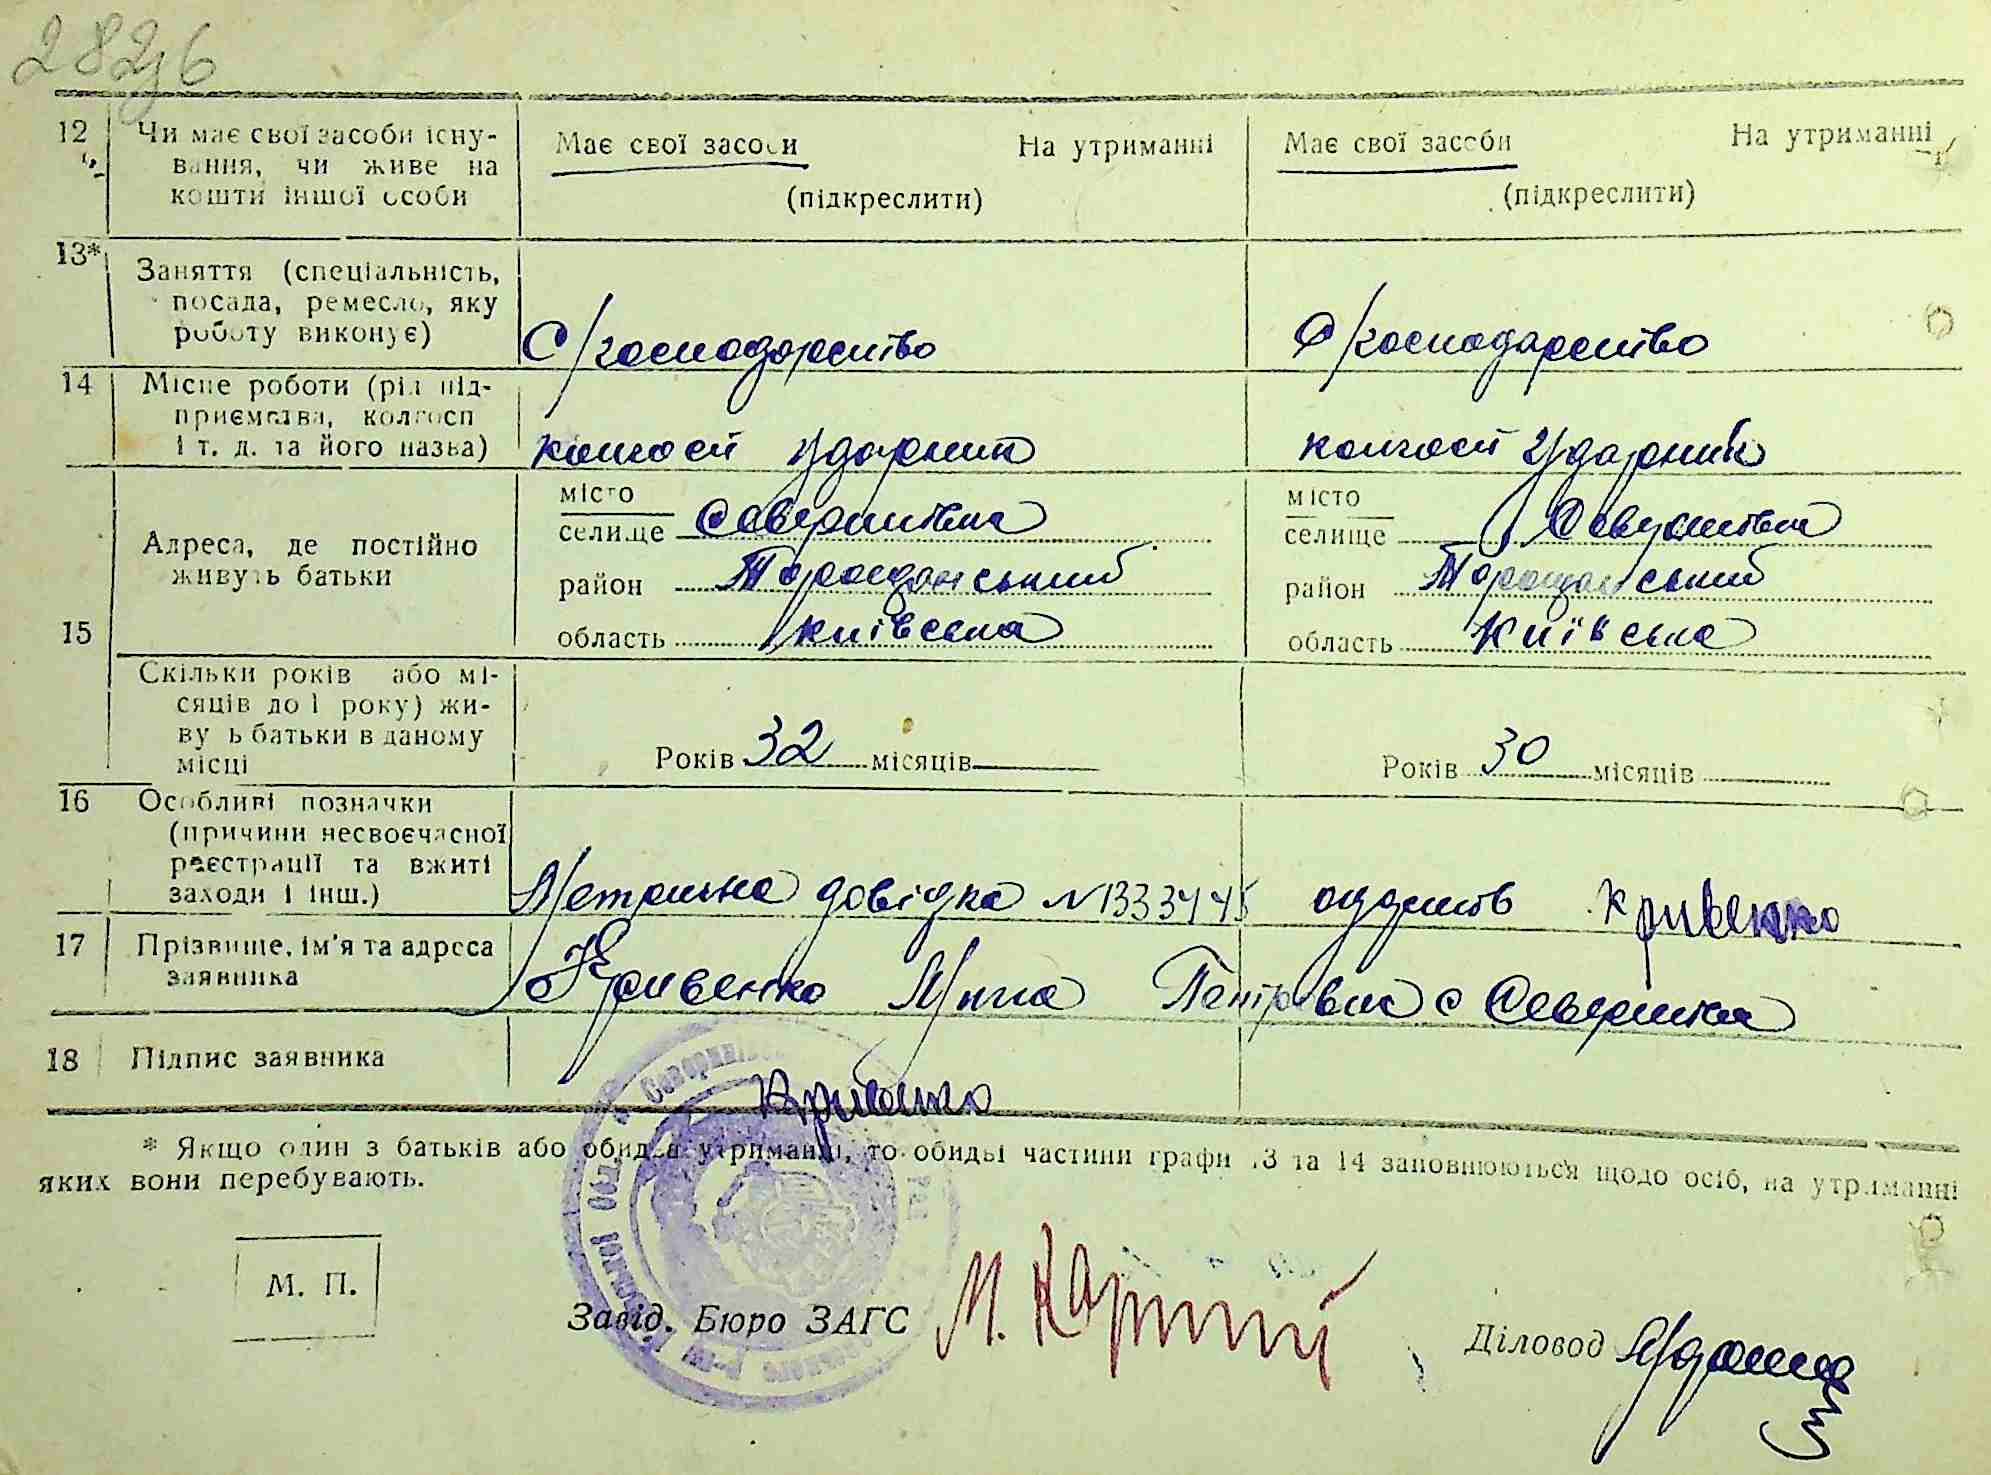 282
6
12 Чи має свої засоби існу-
вання, чи живе на
кошти іншої особи
Має свої засоби На утриманні
(підкреслити)
Має свої засоби На утриманні
(підкреслити)
13* Заняття (спеціальність,
посада, ремесло, яку
роботу виконує)
С/господарство С/господарство
14 Місце роботи (рід під-
приємства, колгосп
і т. д. та його назва)
колгосп Ударник колгосп Ударник
15 Адреса, де постійно
живуть батьки
місто
селище Севернівка
район Таращанський
область київська
місто
селище Севернівка
район Таращанський
область Київська
Скільки років або мі-
сяців до 1 року) жи-
ву ь батьки в даному
місці
Років 32 місяців
Років 30 місяців
16 Особливі позначки
(причини несвоєчасної
реєстрації та вжиті
заходи і інш.)
довідка N 1333445 Кривенко
17 Прізвище, ім'я та адреса
заявника
Кривенко Петрівна с Севернівка
18 Підпис заявника
Кривенко
* Якщо один з батьків або обидва утриманні, то обидві частини графи 13 та 14 заповнюються щодо осіб, на утриманні
яких вони перебувають.
М. П.
Завід. Бюро ЗАГС
Діловод